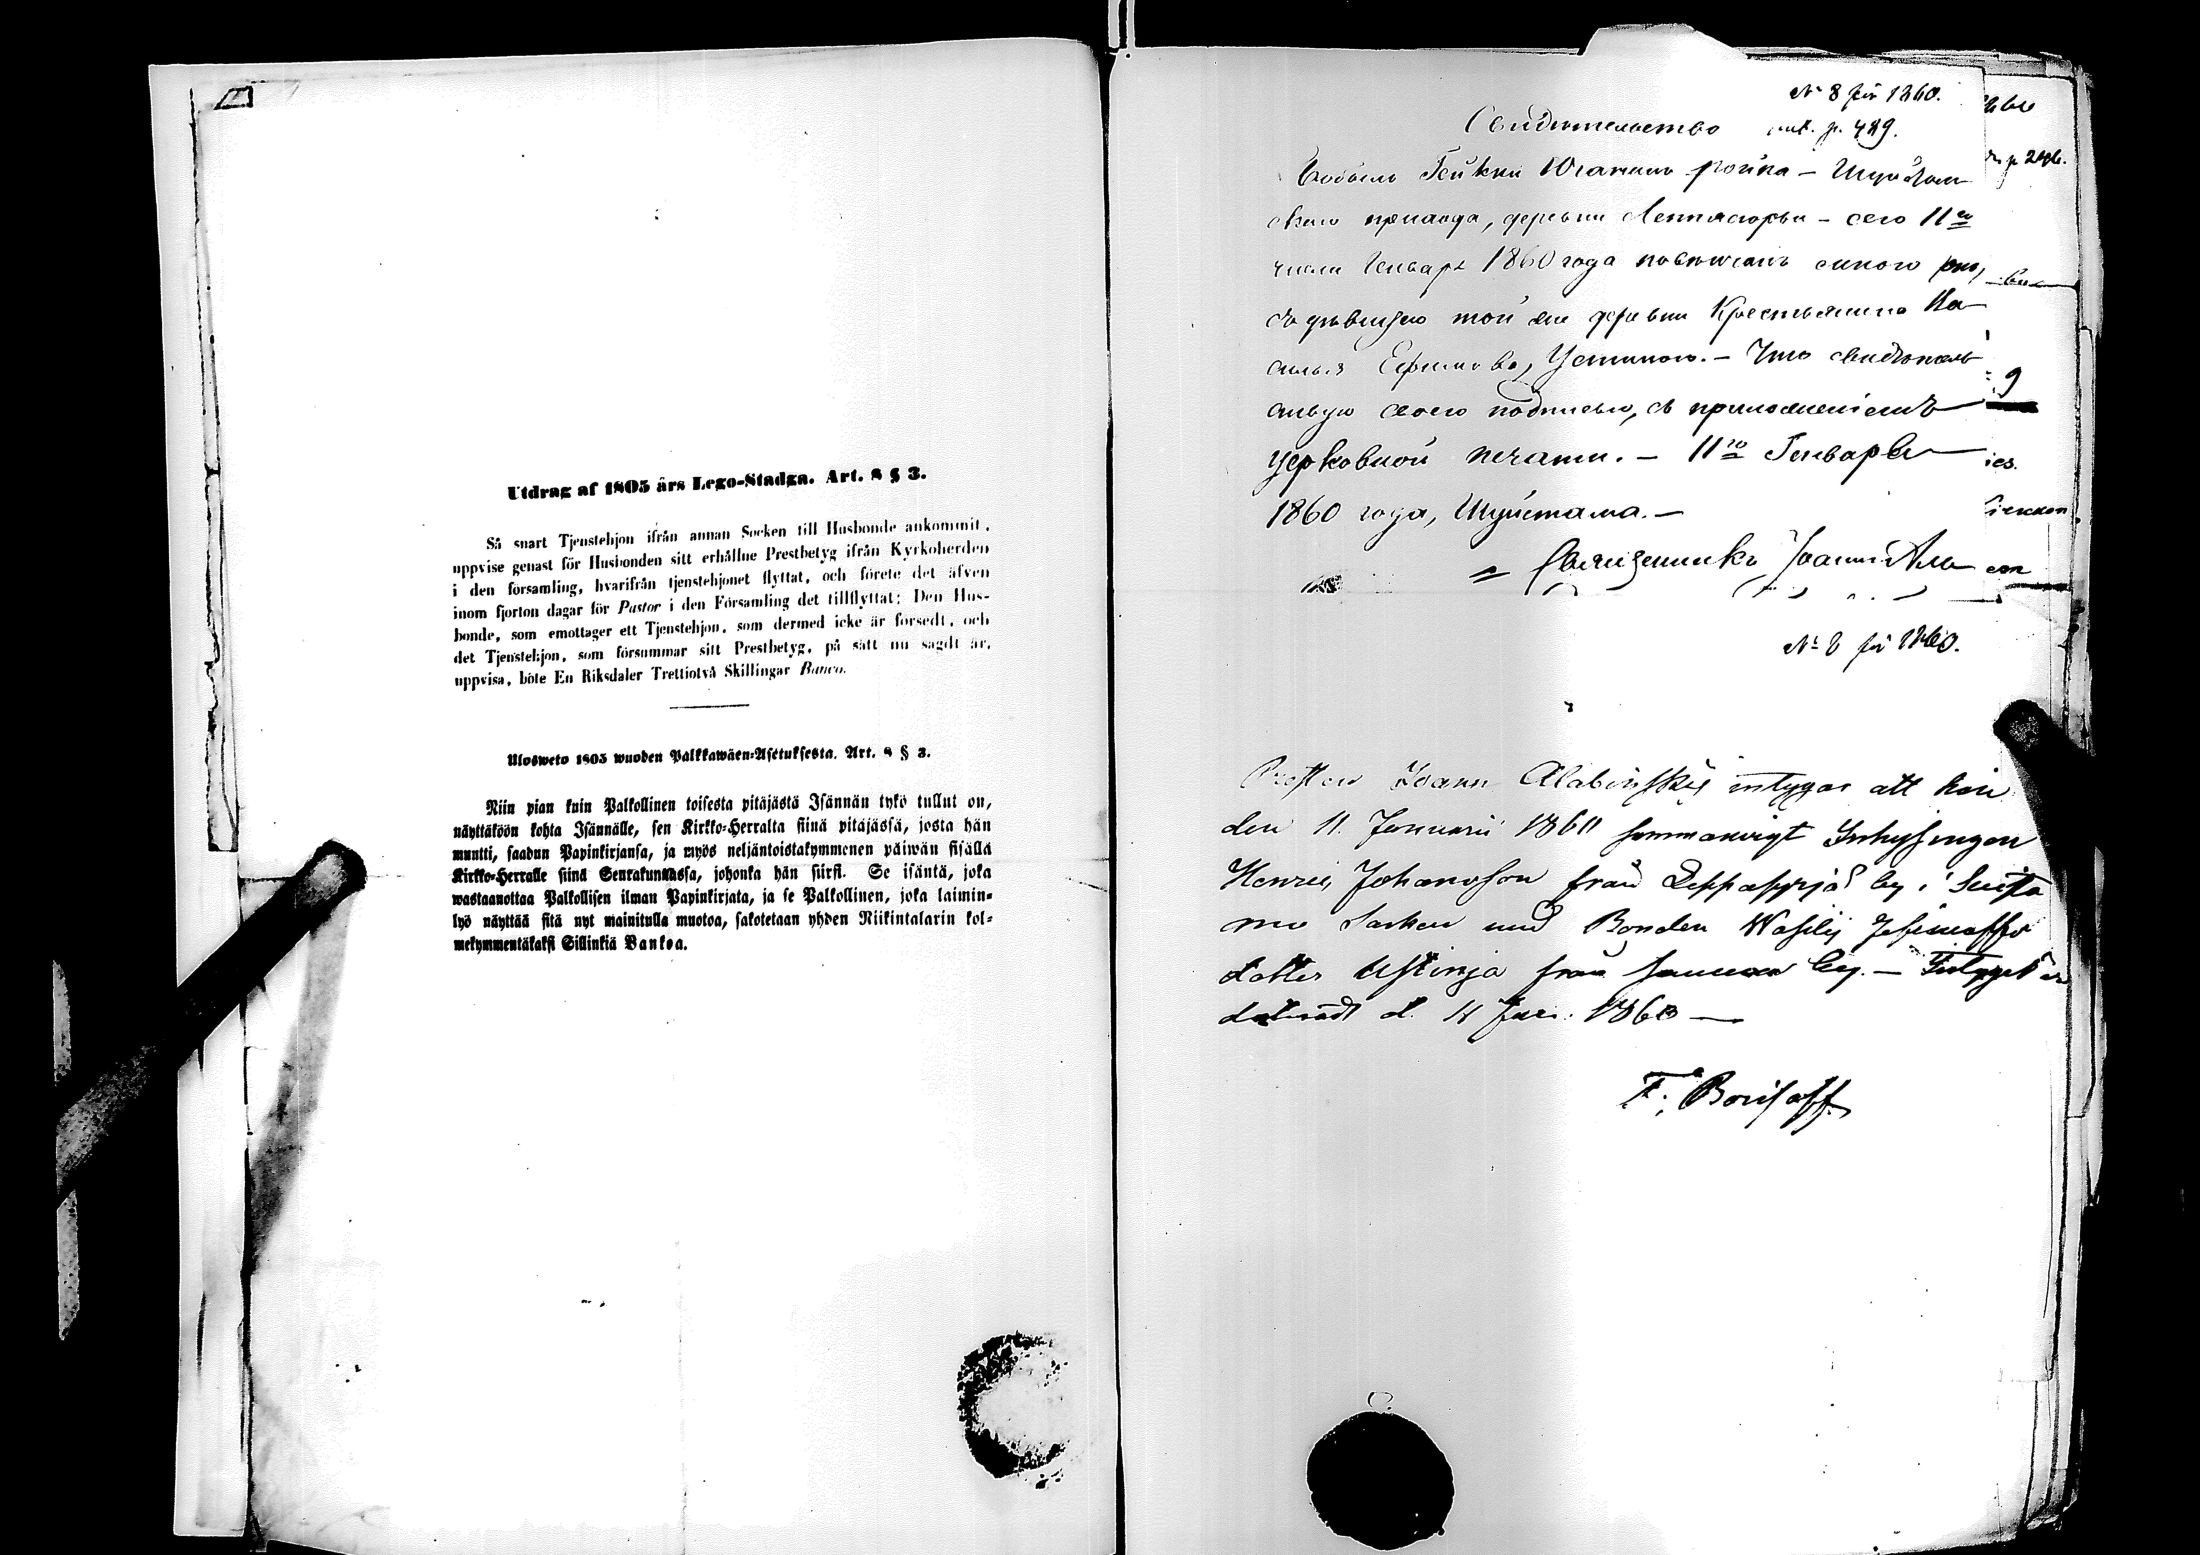 Utdrag af 1805 års Lego-Stadga. Art. 8 § 3.
Så snart Tjenstehjon ifrån annan Socken till Husbonde ankommit,
uppvise genast för Husbonden sitt erhållne Prestbetyg ifrån Kyrkoherden
i den församling, hvarifrån tjenstehjonet flyttat, och förete det äfven
inom fjorton dagar för Pastor i den Församling det tillflyttat: Den Hus-
bonde, som emottager ett Tjenstehjon, som dermed icke är försedt, och
det Tjenstehjon, som försummar sitt Prestbetyg, på sätt nu sagdt är,
uppvisa, böte En Riksdaler Trettiotvå Skillingar Banco.
Ulosweto 1805 wuoden Palkkawäen-Asetuksesta. Art. 8 § 3.
Niin pian kuin Palkollinen toisesta pitäjästä Isännän tykö tullut on,
näyttäköön kohta Isännälle, sen Kirkko-Herralta siinä pitäjässä, josta hän
muutti, saadun Papinkirjansa, ja myös neljäntoistakymmenen päiwän sisällä
Kirkko-Herralle siinä Seurakunnassa, johonka hän siirsi. Se isäntä, joka
wastaanottaa Palkollisen ilman Papinkirjata, ja se Palkollinen, joka laimin-
lyö näyttää sitä nyt mainitulla muotoa, sakotetaan yhden Riikintalarin kol-
mekymmentäkaksi Sillinkiä Bankoa.
№ 8 för 1860.
Свидѣтельство p. 489.
Бобыль Гейкки Юганинъ — Шуйстам
скаго прихода, деревни Леппясюрьи — сего 11го
числа Генваря 1860 года повѣнчанъ мною
съ дѣвицею той же деревни Крестьянина Ва
силья Ефимова, Устиною. — Что свидѣтель
ствую своею подписью, съ приложеніемъ
церковной печати. — 11го Генваря
1860 года, Шуйстама. —
Священникъ Іоаннъ Ала
№ 8 för 1860.
Presten Joann Alabinskij intygar att han
den 11 Januarii 1860 sammanvigt Inhysingen
Henric Johansson från Leppäsyrjä by i Suista
mo Socken med Bonden Wasilij Jefimoffs
dotter Ustinja från samma by. — Intyget är
dateradt d. 11 Jan. 1860 —
F. Borisoff.